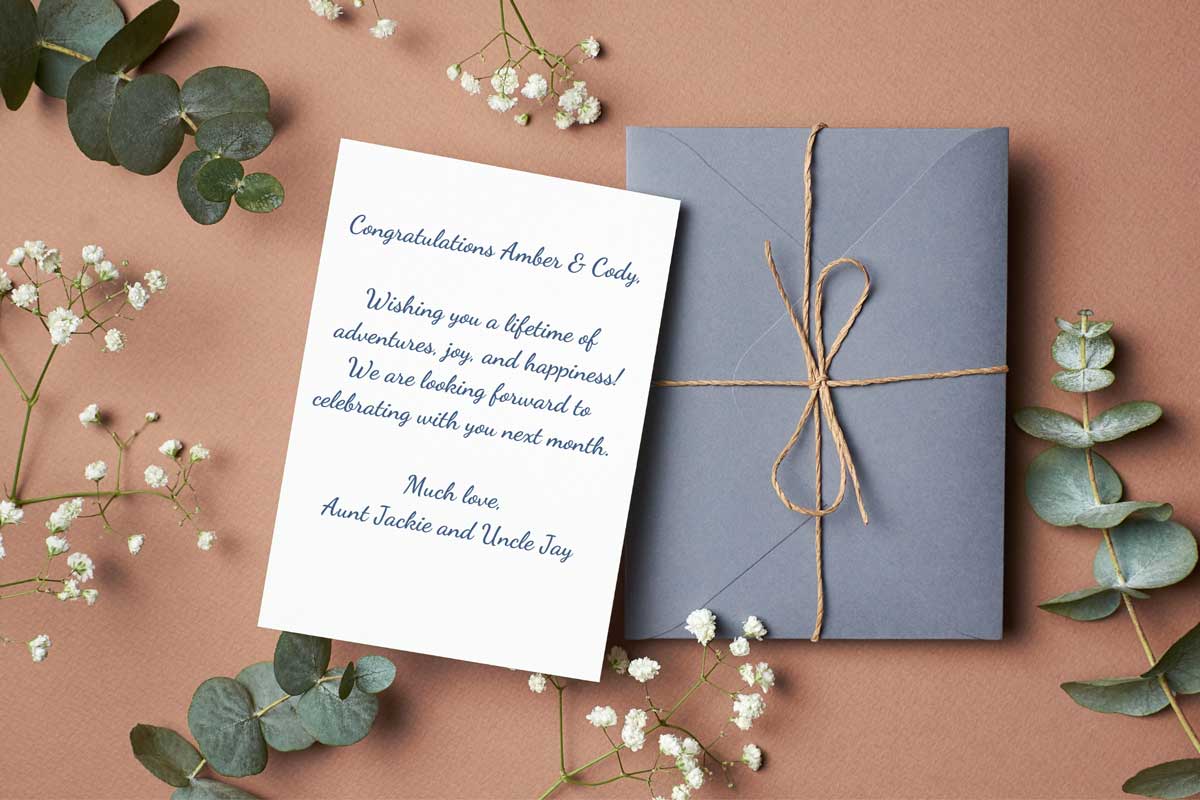 Congratulations Amber & Cody,
Wishing you a lifetime of
adventures, joy, and happiness!
We are looking forward to
celebrating with you next month.
Much love,
Aunt Jackie and Uncle Jay